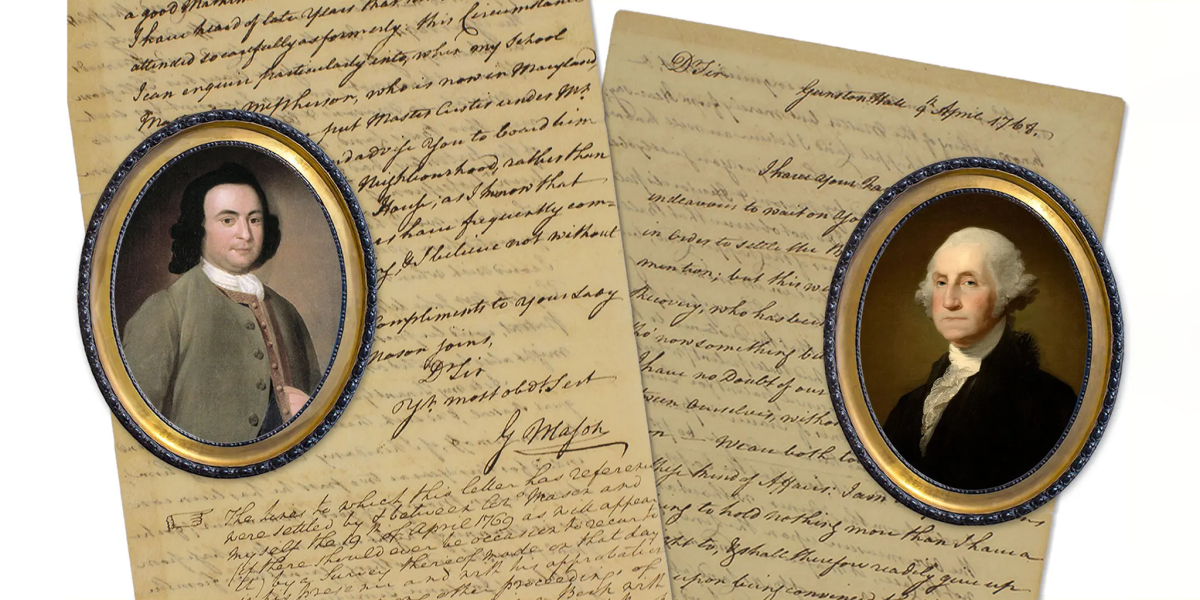 a good
I have heard of late Years that
attended to carefully as formerly: this Circumstance
I can enquire particularly into, when my School
McPherson, who is now in Maryland
put Master Custis under Mr.
advise You to board him
Neighbourhood, rather than
House; as I know that
have frequently com=
& I believe not without
Compliments to Your Lady
Mason joins,
Dr Sir
Yr. most obdt. Sert
G Mason
The Lines to which this letter has reference
were settled by & between Colo. Mason and
myself the 19th of April 1769 as will appear
(if there should ever be occasion to recur to
it) by a Survey thereof made on that day
in his presence and with his approbation
other proceedings of
Dr Sir
Gunston Hall 9th April 1768.
I have Your Fav
endeavour to wait on You
in order to settle the
mention; but this
Recovery, who has been
tho' now something be
I have no Doubt of our
tween Ourselves, witho
We are both to
these kind of Affairs: I am
to hold nothing more than I have a
to, & shall therefore readily give up
upon being convinced